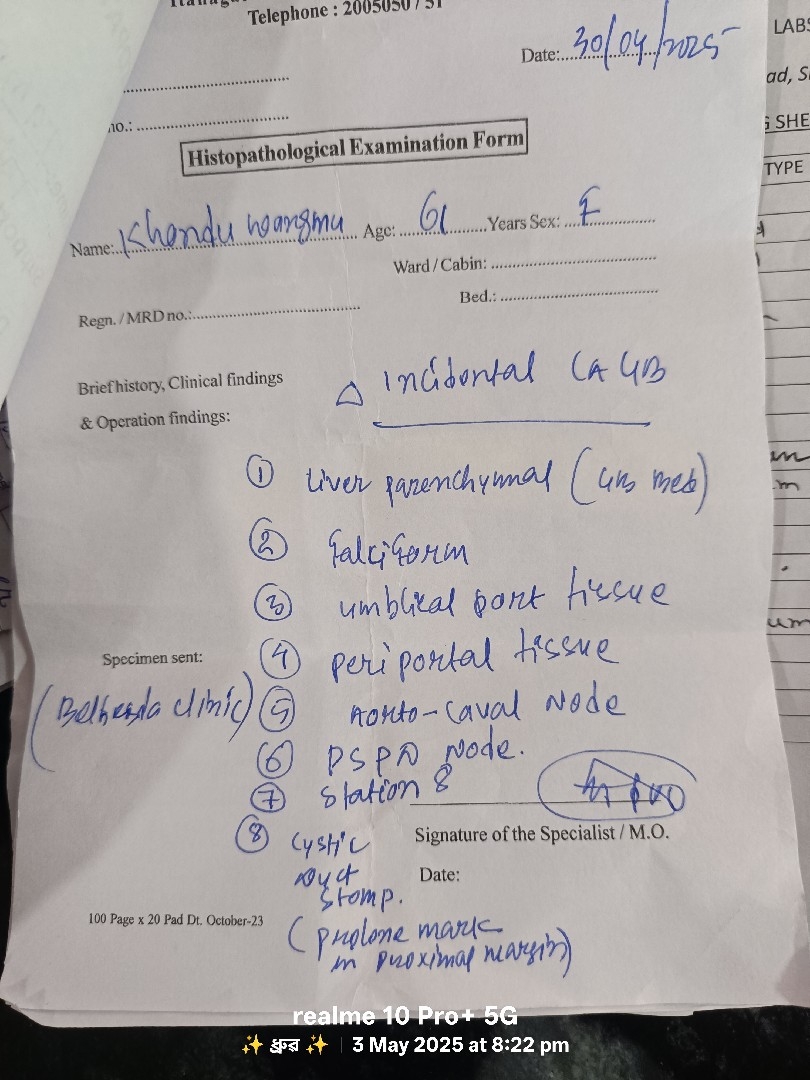 Telephone : 2005050 / 51
Date: 30/04/2025
no.:
Histopathological Examination Form
Name: Khandu wangmu Age: 61 Years Sex: F
Ward / Cabin:
Regn. / MRD no.: Bed.:
Brief history, Clinical findings
& Operation findings:
△ Incidental CA GB
① Liver parenchymal (GB Bed)
② falciform
③ umblical port tissue
Specimen sent: ④ periportal tissue
(Bethesda clinic) ⑤ Aorto-caval Node
⑥ PSPD Node.
⑦ Station 8
⑧ Cystic
Duct
Stomp.
(prolone mark
in proximal margin)
Signature of the Specialist / M.O.
Date:
100 Page x 20 Pad Dt. October-23
LABS
ad, S
SHE
TYPE
realme 10 Pro+ 5G
✨ ধ্রুব ✨ | 3 May 2025 at 8:22 pm